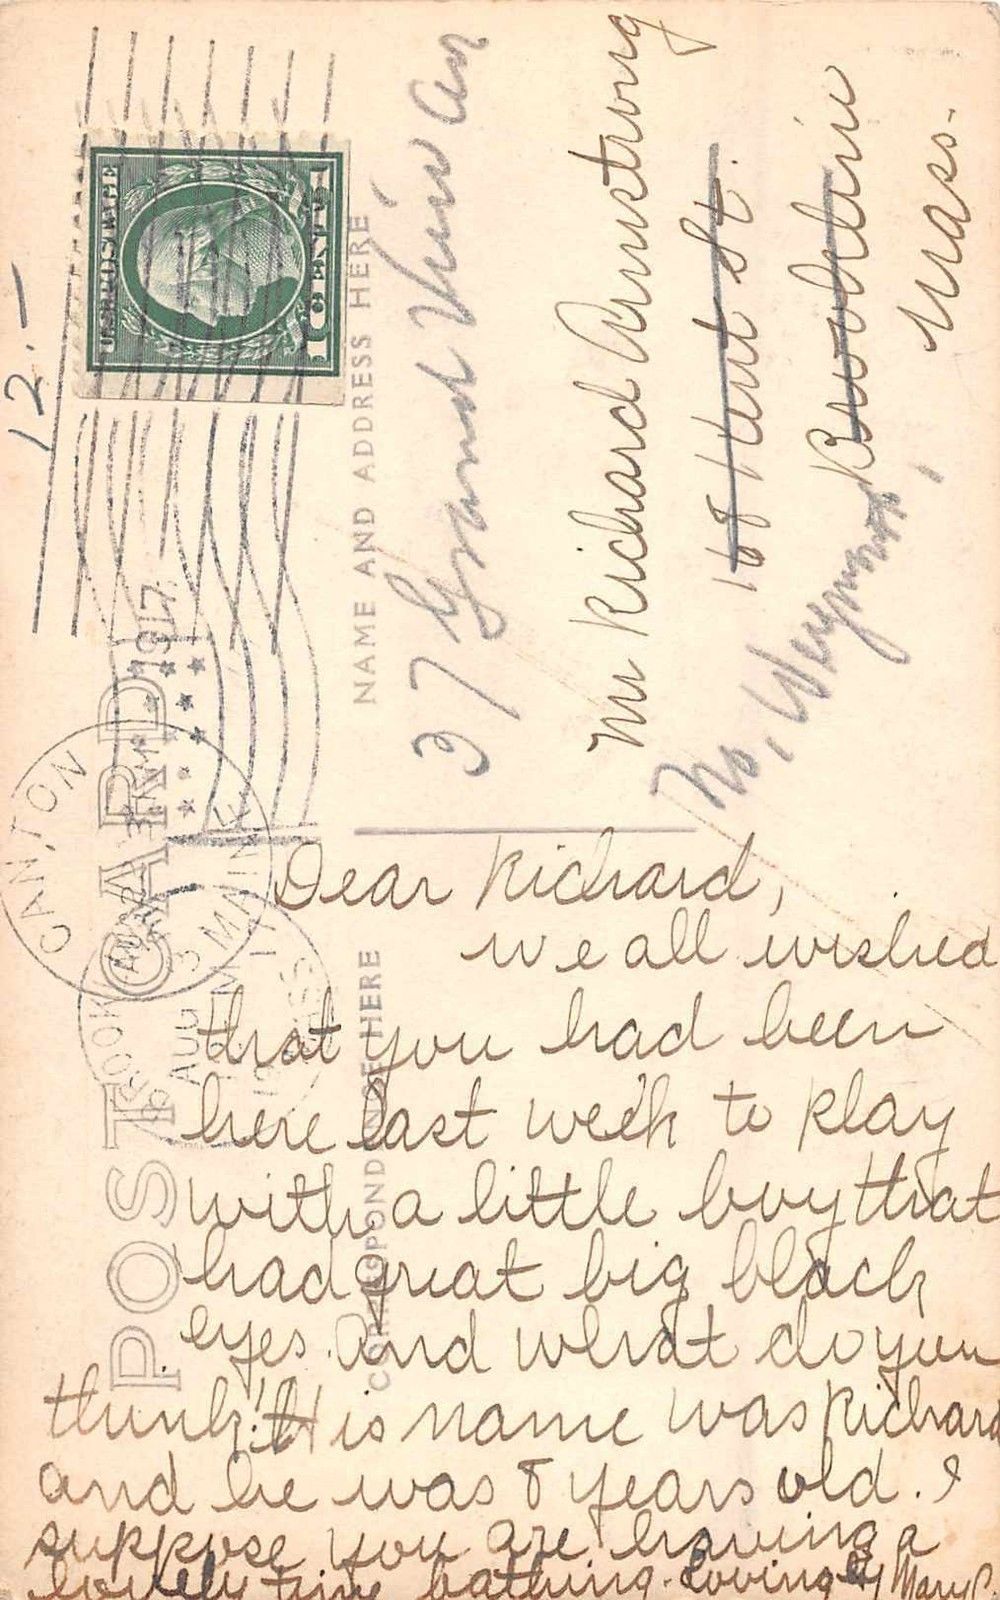 12.-
U.S. POSTAGE
1 CENT 1
CANTON
MAINE
AUG
3
1917
POST CARD
NAME AND ADDRESS HERE
CORRESPONDENCE HERE
37 Grand View Av
Mr Richard Armstrong
168 Kent St.
Brookline
No, Weymouth,
Mass.
Dear Richard,
We all wished
that you had been
here last week to play
with a little boy that
had great big black
eyes. And what do you
think! His name was Richard
and he was 8 years old. I
suppose you are having a
lovely time bathing. Lovingly Mary C.